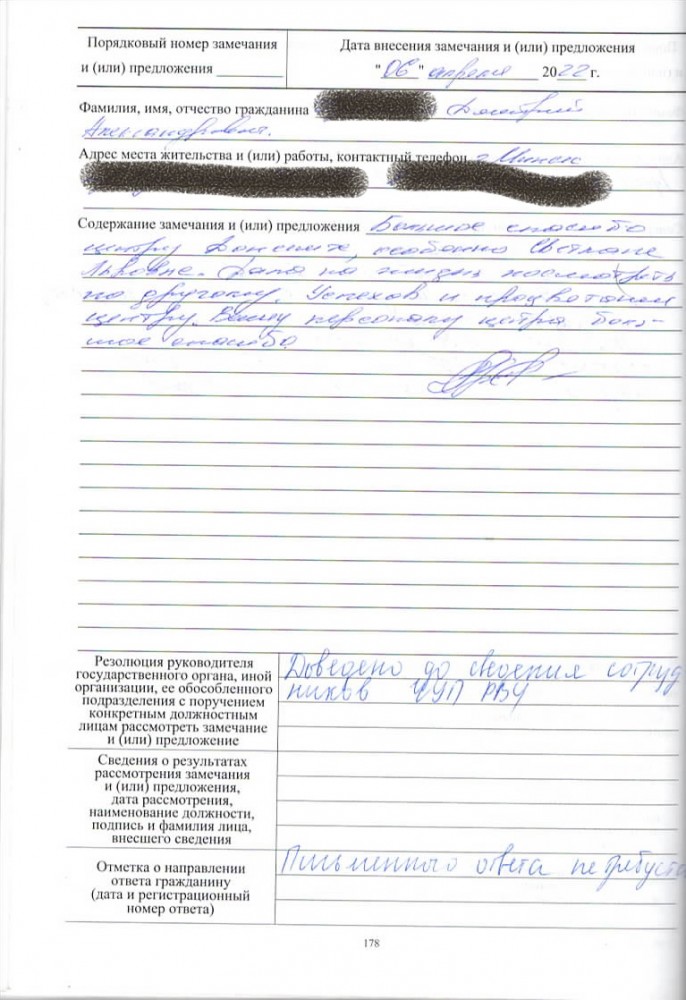 Порядковый номер замечания
и (или) предложения
Дата внесения замечания и (или) предложения
"06" апреля 2022 г.
Фамилия, имя, отчество гражданина Дмитрий
Александрович.
Адрес места жительства и (или) работы, контактный телефон г. Минск
Содержание замечания и (или) предложения Большое спасибо
центру, особенно Светлане
Львовне. на жизнь посмотреть
по другому. Успехов и процветания
центру. Всему персоналу центра боль-
шое спасибо
Резолюция руководителя
государственного органа, иной
организации, ее обособленного
подразделения с поручением
конкретным должностным
лицам рассмотреть замечание
и (или) предложение
Доведено до сведения сотруд
ников ЧУП РВУ
Сведения о результатах
рассмотрения замечания
и (или) предложения,
дата рассмотрения,
наименование должности,
подпись и фамилия лица,
внесшего сведения
Отметка о направлении
ответа гражданину
(дата и регистрационный
номер ответа)
Письменного ответа не требуется
178